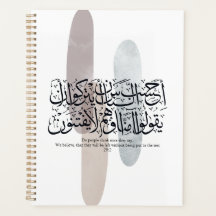 أحسب الناس أن يتركوا أن
يقولوا آمنا وهم لا يفتنون
Do people think once they say,
We believe, that they will be left without being put to the test
29:2